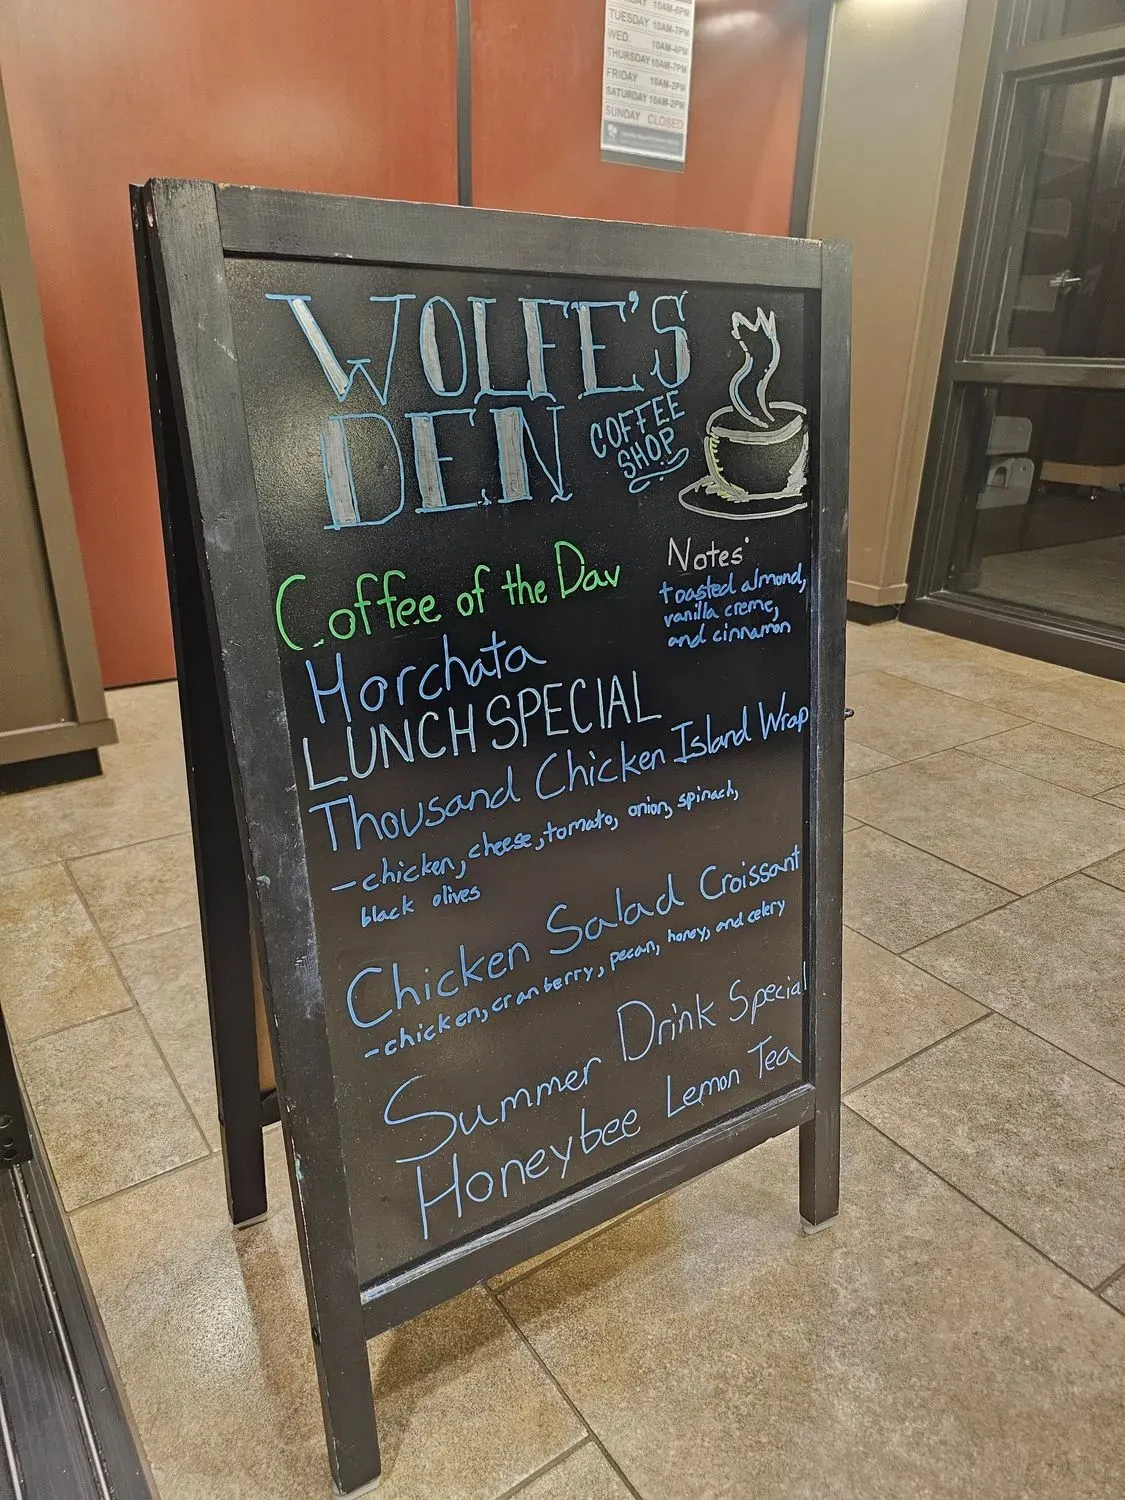 DAY 10AM-6PM
TUESDAY 10AM-7PM
WED. 10AM-4PM
THURSDAY 10AM-7PM
FRIDAY 10AM-2PM
SATURDAY 10AM-2PM
SUNDAY CLOSED
WOLFE'S
DEN
COFFEE
SHOP
Coffee of the Day
Horchata
Notes:
toasted almond,
vanilla creme,
and cinnamon
LUNCH SPECIAL
Thousand Chicken Island Wrap
- chicken, cheese, tomato, onion, spinach,
black olives
Chicken Salad Croissant
- chicken, cranberry, pecan, honey, and celery
Summer Drink Special
Honeybee Lemon Tea